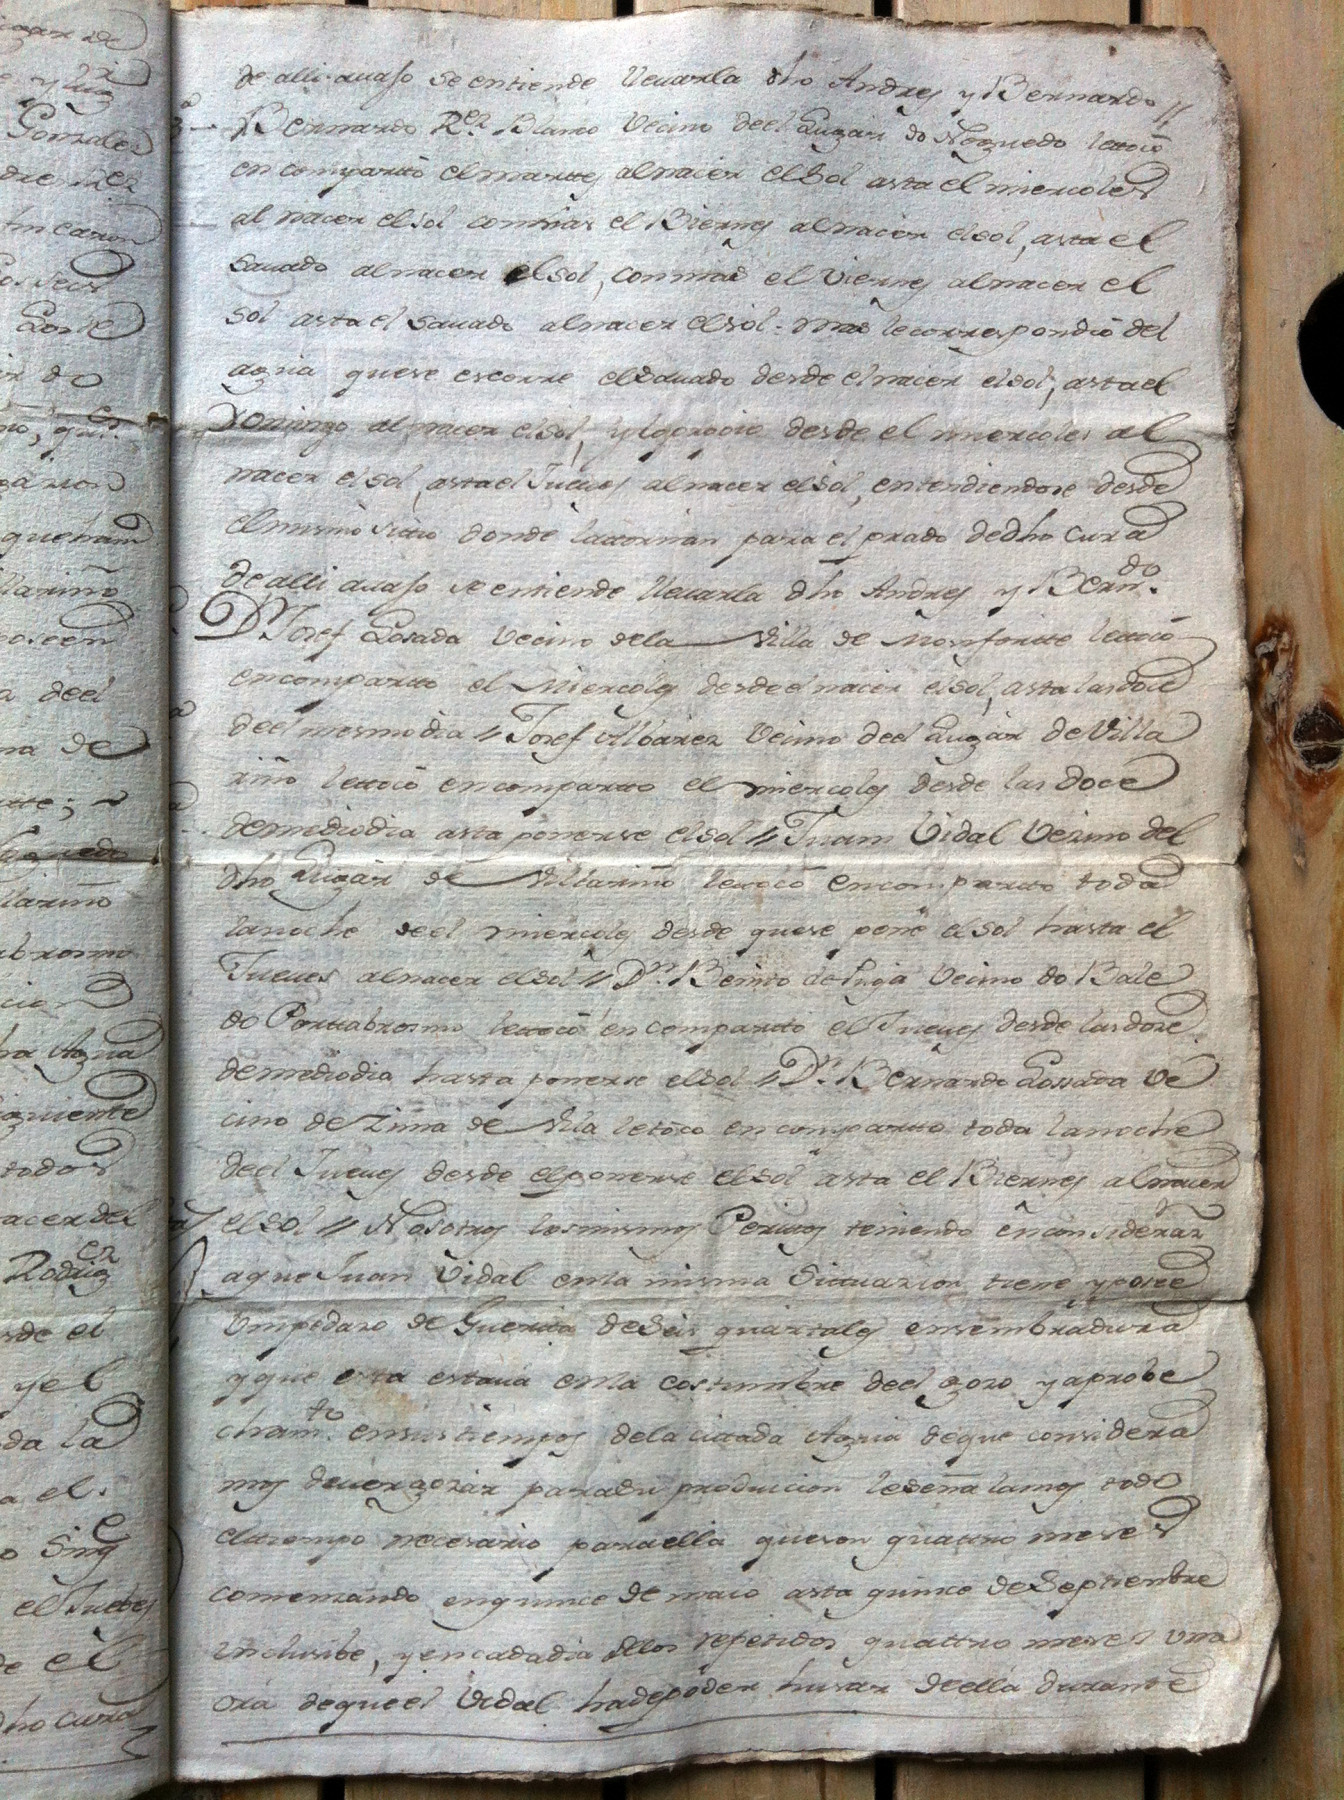 de alli avajo se entiende llevarla dho Andres y Bernardo //
Bernardo Rez Blanco Vecino deel Lugar do Noguedo letocó
en compartto el martes al nacer el Sol asta el miercoles
al nacer el sol con mas el Biernes al nacer el sol, asta el
Savado al nacer el sol, con mas el Viernes al nacer el
sol asta el Savado al nacer el sol = mas le correspondió del
agua que se escorre el Savado desde el nacer el sol, asta el
Domingo al nacer el sol, y lo propio desde el miercoles al
nacer el sol, asta el Jueves al nacer el sol, entendiendose desde
el mismo sitio donde la toman para el prado de dho Cura
de alli avajo se entiende llevarla dho Andres y Bern.do
Dn Josef Losada Vecino de la Villa de Monfortte letocó
en compartto el Miercoles desde el nacer el sol, asta las doce
deel mesmo dia // Josef Albarez Vecino deel Lugar de Villa
riño letocó en compartto el miercoles desde las doce
de mediodia asta ponerse el sol // Juan Vidal Vecino del
dho Lugar de Villariño letocó en compartto toda
la noche deel miercoles desde que se pone el sol hasta el
Jueves al nacer el sol // Dn. Benito de Puga Vecino do Bale
do Porttabrosmo letocó en compartto el Jueves desde las doce
de mediodia hasta ponerse el sol // Dn. Bernardo Lossada Ve
cino de Zima de Vila letóco en compartto toda la noche
deel Jueves desde el ponerse el sol asta el Biernes al nacer
el sol // Nosotros los mismos Peritos teniendo en consideraz.n
a que Juan Vidal en la misma Situazion tiene y posee
Vn pedazo de Guerta de Seis quartales en sembradura
y que esta estava en la costumbre deel gozo y aprobe
cham.to en sus tiempos de la citada Agua de que considera
mos dever gozar para su producion le señalamos todo
el tiempo necesario para ella que son quattro meses
comenzando en quince de maio asta quince de Septiembre
inclusibe, y en cada dia dellos repetidos quattro meses una
ora de que el Vidal ha de poder husar de ella durante